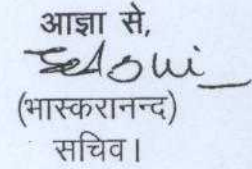 आज्ञा से,
(भास्करानन्द)
सचिव।